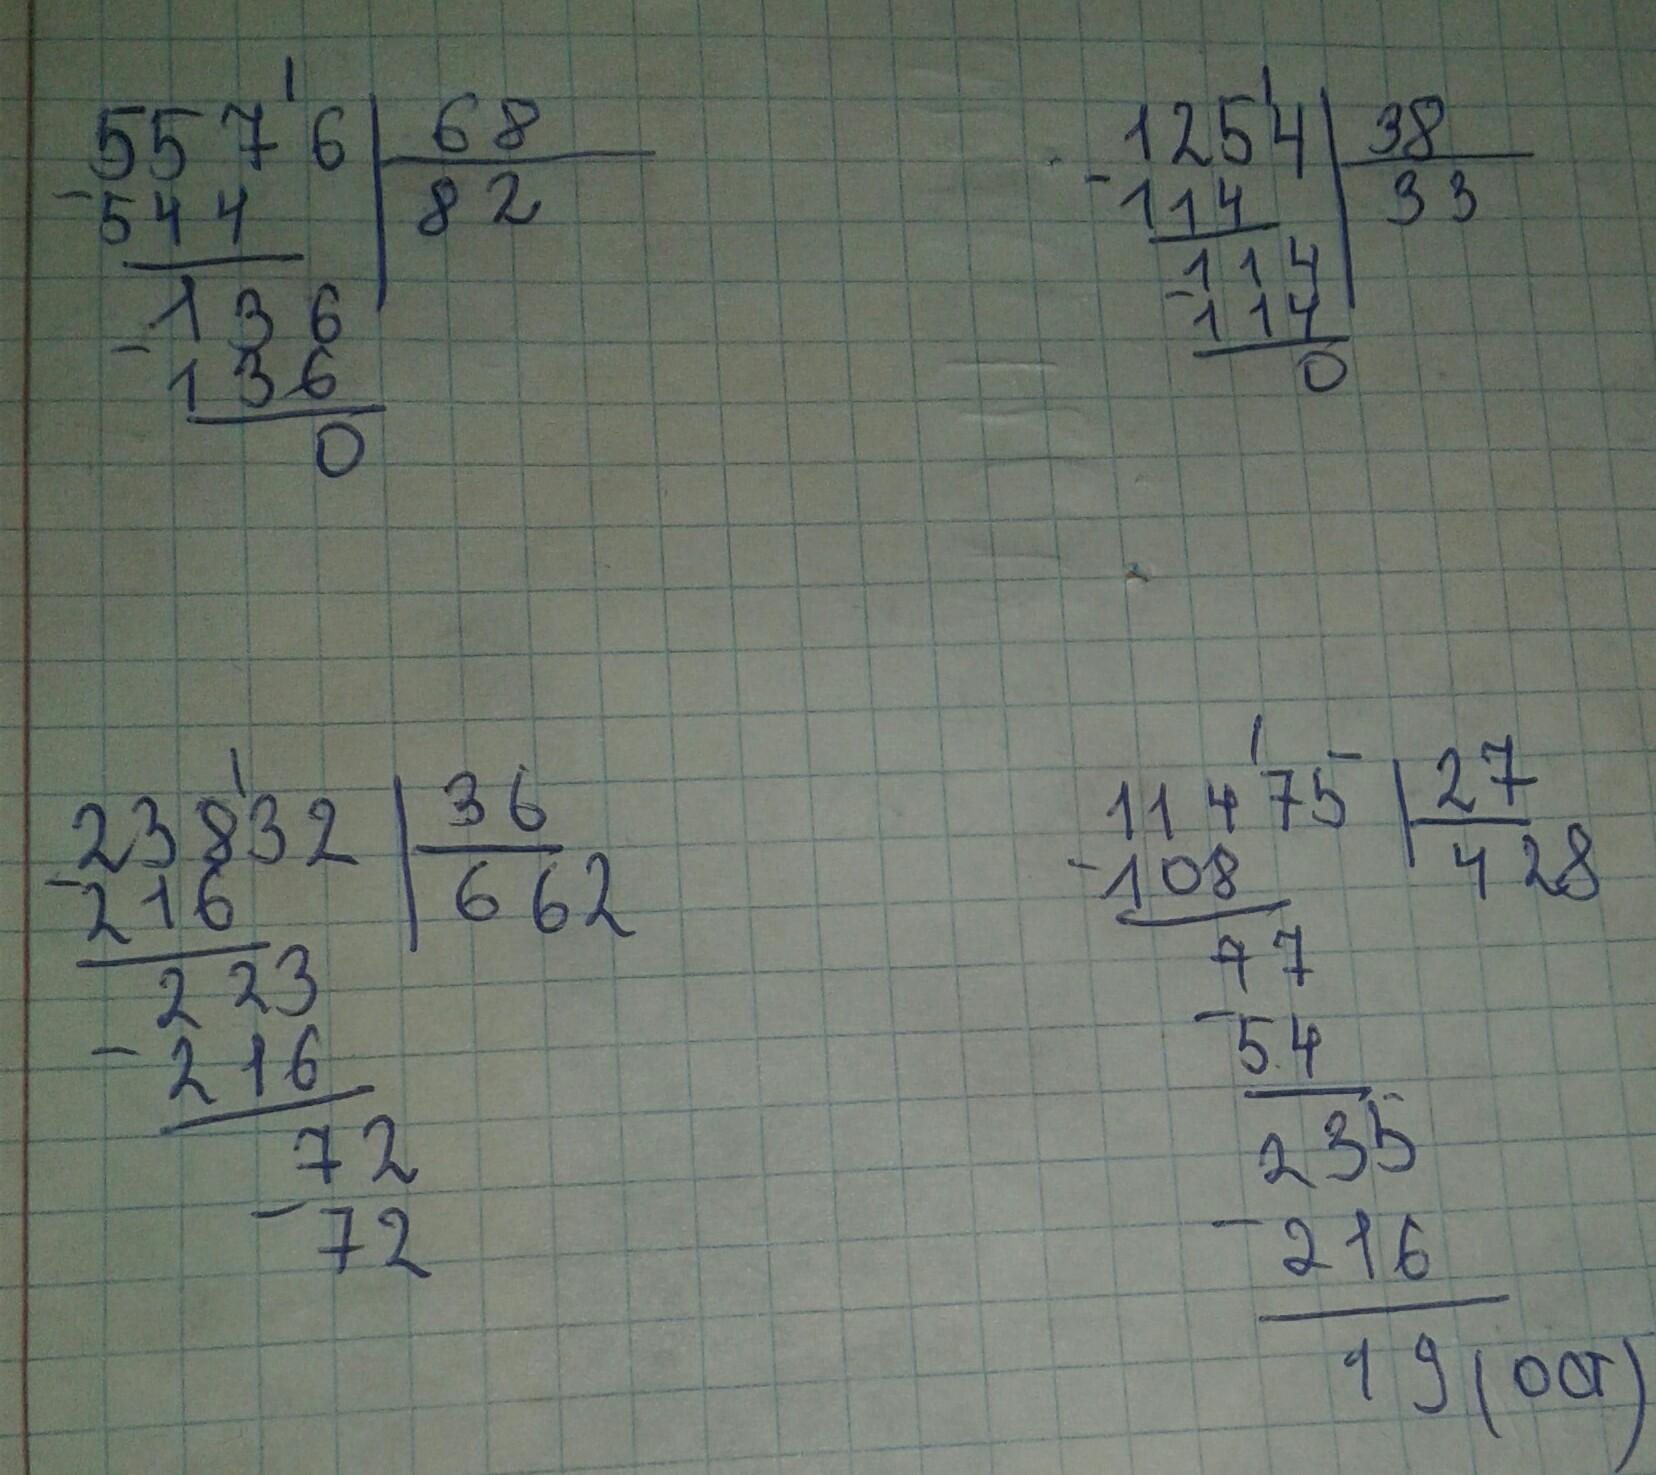 5576 68
- 544 82
136
- 136
0
1254 38
- 114 33
114
- 114
0
23832 36
- 216 662
223
- 216
72
- 72
11475 27
- 108 428
77
- 54
235
- 216
19 (ост)